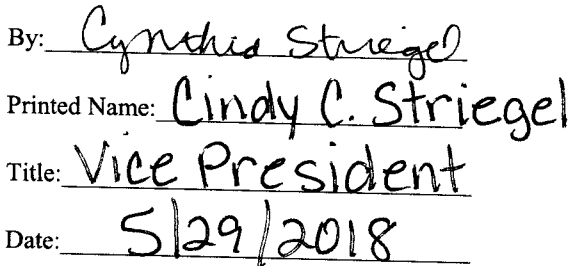 By: Cynthia Striegel
Printed Name: Cindy C. Striegel
Title: Vice President
Date: 5/29/2018